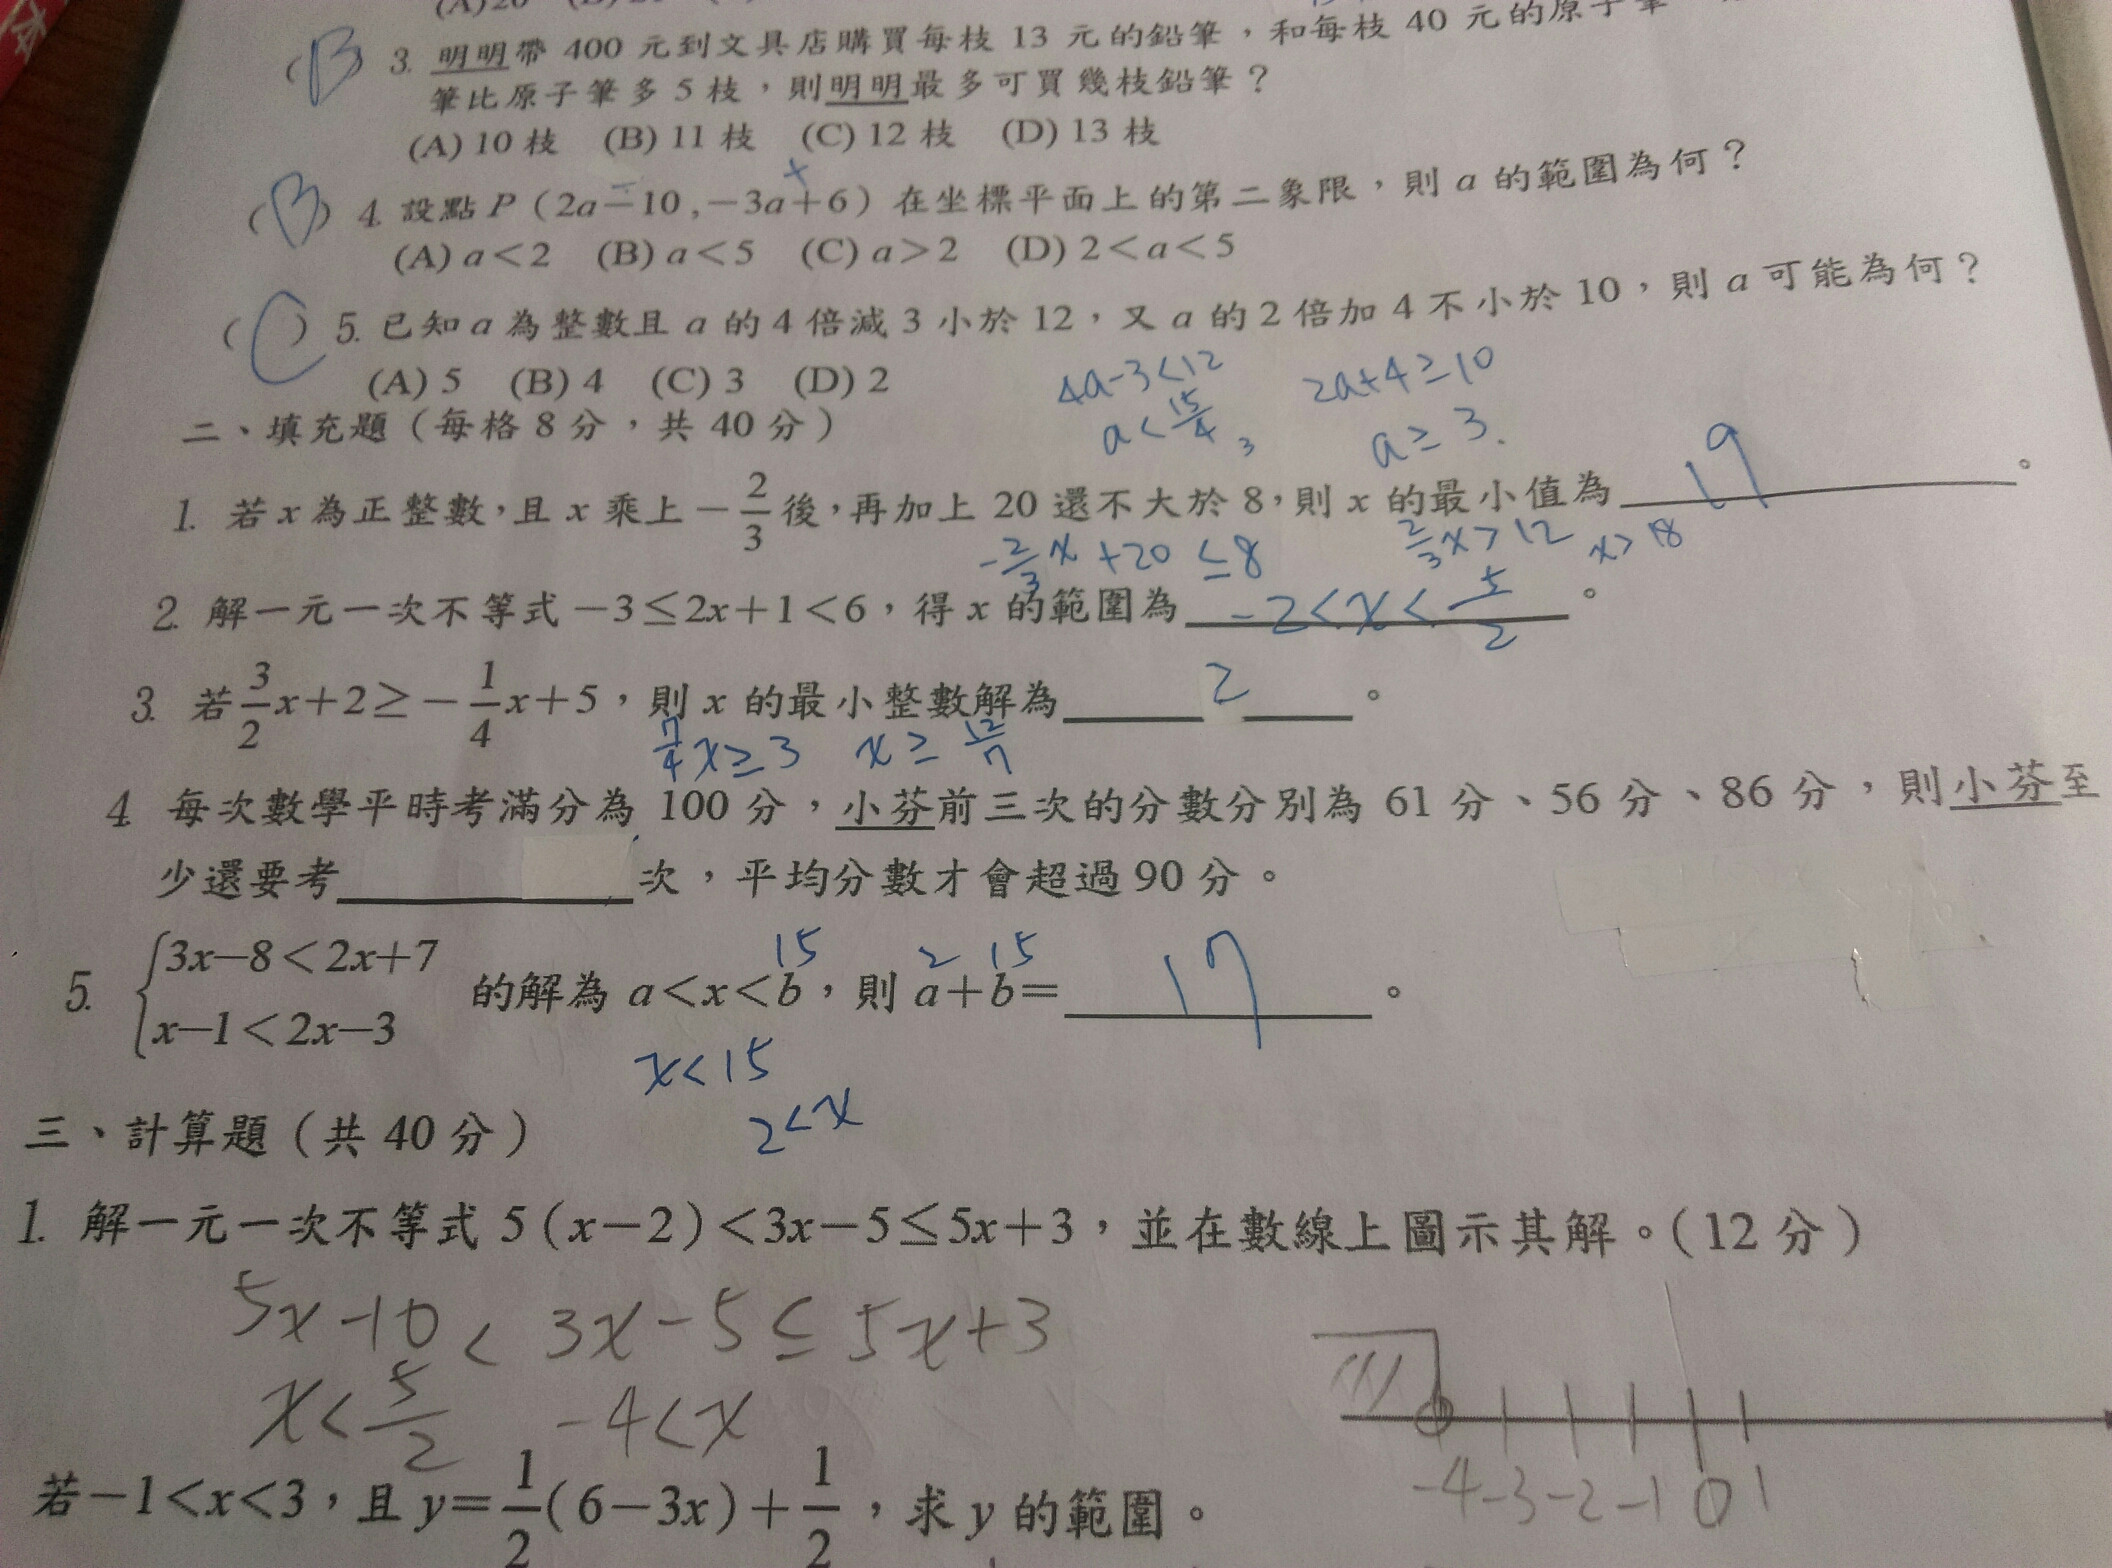 (B) 3. 明明帶 400 元到文具店購買每枝 13 元的鉛筆，和每枝 40 元的原子筆
筆比原子筆多 5 枝，則明明最多可買幾枝鉛筆？
(A) 10 枝 (B) 11 枝 (C) 12 枝 (D) 13 枝
− +
(B) 4. 設點 P（2a−10，−3a+6）在坐標平面上的第二象限，則 a 的範圍為何？
(A) a<2 (B) a<5 (C) a>2 (D) 2<a<5
(C) 5. 已知 a 為整數且 a 的 4 倍減 3 小於 12，又 a 的 2 倍加 4 不小於 10，則 a 可能為何？
(A) 5 (B) 4 (C) 3 (D) 2
4a-3<12 2a+4≥10
a<15/4 3 a≥3.
二、填充題（每格 8 分，共 40 分）
1. 若 x 為正整數，且 x 乘上 −2/3 後，再加上 20 還不大於 8，則 x 的最小值為 19 。
-2/3x+20≤8 2/3x>12 x>18
2. 解一元一次不等式 −3≤2x+1<6，得 x 的範圍為 -2<x<5/2 。
3. 若 3/2x+2≥−1/4x+5，則 x 的最小整數解為 2 。
7/4x≥3 x≥12/7
4. 每次數學平時考滿分為 100 分，小芬前三次的分數分別為 61 分、56 分、86 分，則小芬至
少還要考 次，平均分數才會超過 90 分。
15 2 15
5. {3x−8<2x+7
x−1<2x−3 的解為 a<x<b，則 a+b= 17 。
x<15
2<x
三、計算題（共 40 分）
1. 解一元一次不等式 5（x−2）<3x−5≤5x+3，並在數線上圖示其解。（12 分）
5x-10<3x-5≤5x+3
x<5/2 -4<x
-4 -3 -2 -1 0 1
若 −1<x<3，且 y=1/2(6−3x)+1/2，求 y 的範圍。